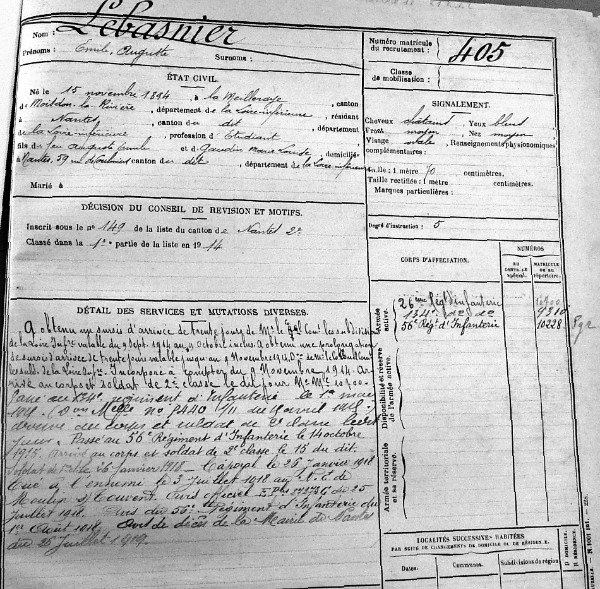 Nom : Lebasnier
Prénoms : Emile, Auguste Surnoms :
Numéro matricule du recrutement : 405
Classe de mobilisation :
ÉTAT CIVIL.
Né le 15 novembre 1894, à la Meilleraye, canton
de Moisdon-la-Rivière, département de la Loire-inférieure, résidant
à Nantes, canton de dit, département
de la Loire-inférieure, profession d'Etudiant
fils de feu Auguste Emile et de Marie Louise, domiciliés
à Nantes, 59 canton de dit, département de la Loire-inférieure
Marié à
SIGNALEMENT.
Cheveux châtains Yeux bleus
Front moyen Nez moyen
Visage ovale Renseignements physionomiques
complémentaires :
Taille : 1 mètre 70 centimètres.
Taille rectifiée : 1 mètre centimètres.
Marques particulières :
Degré d'instruction : 5
DÉCISION DU CONSEIL DE RÉVISION ET MOTIFS.
Inscrit sous le n° 149 de la liste du canton de Nantes 2e
Classé dans la 1e partie de la liste en 1914
CORPS D'AFFECTATION.
NUMÉROS
AU CONTRÔLE spécial.
MATRICULE OU AU répertoire.
Armée active.
26ème Rég. d'infanterie
134e do do 9310
56e Rég. d'Infanterie 10228
Disponibilité et réserve de l'armée active.
Armée territoriale et sa réserve.
DÉTAIL DES SERVICES ET MUTATIONS DIVERSES.
A obtenu un sursis d'arrivée de trente jours de Mr le Gal Comt les subdivisions
de la Loire Infre valable du 9 sept. 1914 au 9 octobre inclus. A obtenu une prolongation
de sursis d'arrivée de trente jours valable jusqu'au 9 Novembre 1914
Incorporé à compter du 9 Novembre 1914. Ar-
rivé au corps et soldat de 2e classe le dit jour
Passé au 134e régiment d'Infanterie le 1er mai
1915. No 8440 /11 du 9 avril 1915
Arrivé au corps et soldat de 2e classe le dit
jour. Passé au 56e Régiment d'Infanterie le 14 octobre
1915. Arrivé au corps et soldat de 2e classe le 15 du dit.
Soldat de 1re 26 janvier 1918 - Caporal le 26 janvier 1918
Tué à l'ennemi le 3 juillet 1918 au N.E de
Moulin s/ Touvent. Avis officiel du 25
juillet 1918. Avis du 56e Régiment d'Infanterie du
1er Août 1918. Avis de décès de la Mairie de Nantes
du 25 Juillet 1919.
LOCALITÉS SUCCESSIVES HABITÉES
PAR SUITE DE CHANGEMENTS DE DOMICILE OU DE RÉSIDENCE.
Dates. Communes. Subdivisions de région.
D. DOMICILE.
R. RÉSIDENCE.